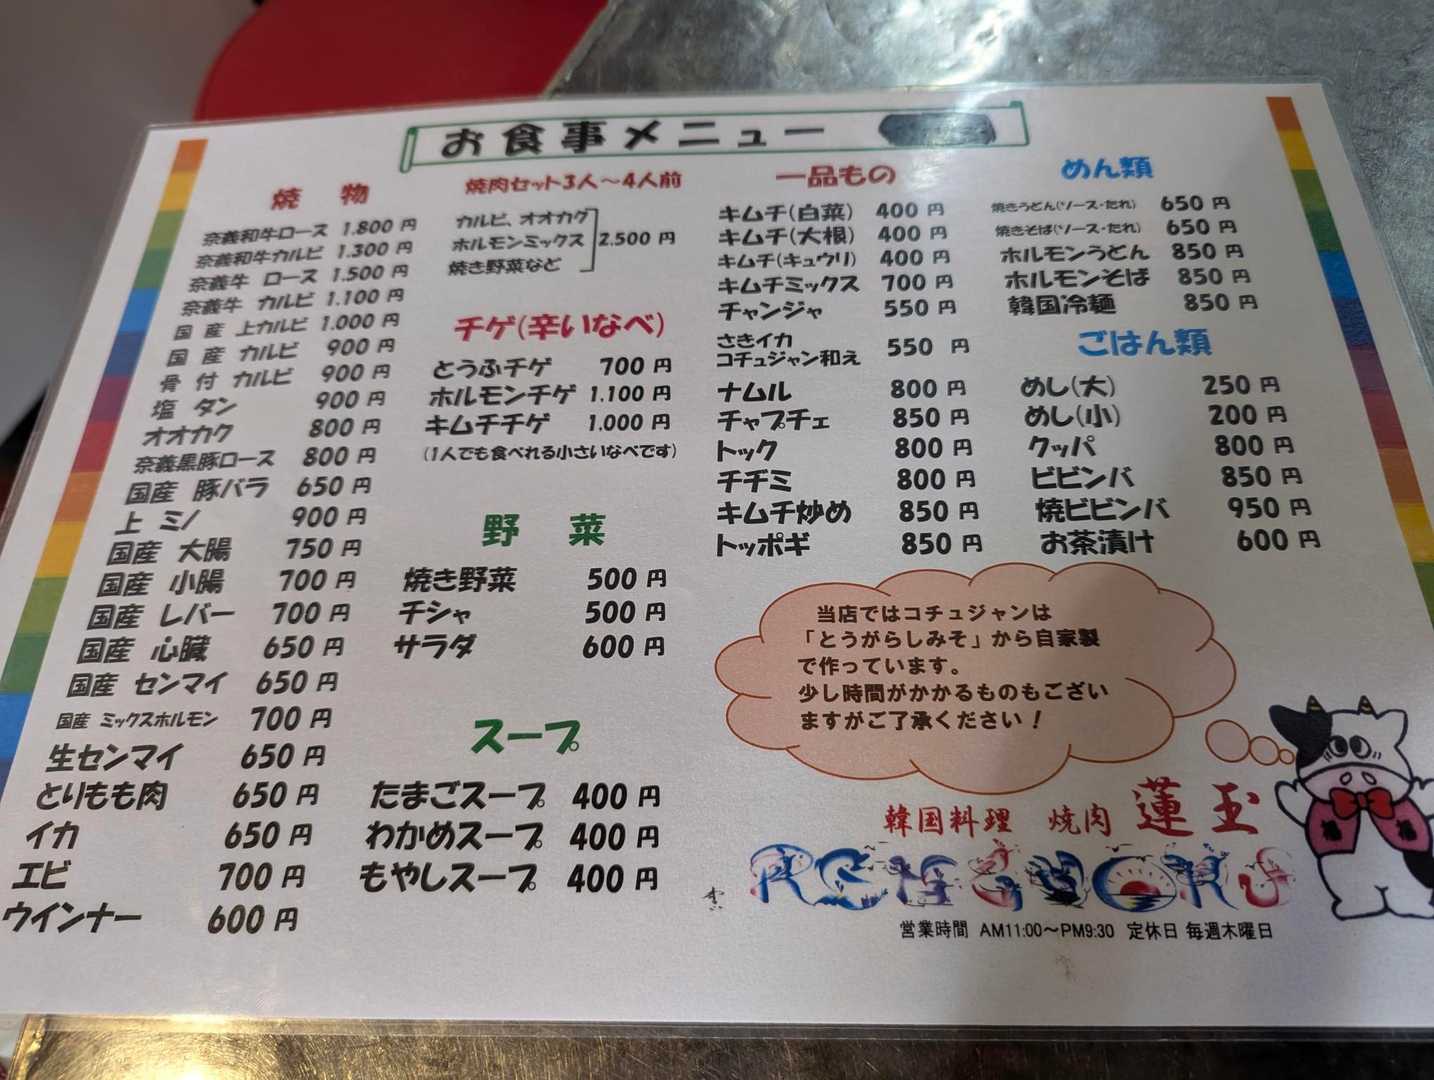 お食事メニュー
焼 物
奈義和牛ロース 1.800 円
奈義和牛カルビ 1.300 円
奈義牛 ロース 1.500 円
奈義牛 カルビ 1.100 円
国 産 上カルビ 1.000 円
国 産 カルビ 900 円
骨 付 カルビ 900 円
塩 タン 900 円
オオカク 800 円
奈義黒豚ロース 800 円
国産 豚バラ 650 円
上 ミノ 900 円
国産 大腸 750 円
国産 小腸 700 円
国産 レバー 700 円
国産 心臓 650 円
国産 センマイ 650 円
国産 ミックスホルモン 700 円
生センマイ 650 円
とりもも肉 650 円
イカ 650 円
エビ 700 円
ウインナー 600 円
焼肉セット3人～4人前
カルビ、オオカク
ホルモンミックス 2.500 円
焼き野菜など
チゲ(辛いなべ)
とうふチゲ 700 円
ホルモンチゲ 1.100 円
キムチチゲ 1.000 円
(1人でも食べれる小さいなべです)
野 菜
焼き野菜 500 円
チシャ 500 円
サラダ 600 円
スープ
たまごスープ 400 円
わかめスープ 400 円
もやしスープ 400 円
一品もの
キムチ(白菜) 400 円
キムチ(大根) 400 円
キムチ(キュウリ) 400 円
キムチミックス 700 円
チャンジャ 550 円
さきイカ
コチュジャン和え 550 円
ナムル 800 円
チャプチェ 850 円
トック 800 円
チヂミ 800 円
キムチ炒め 850 円
トッポギ 850 円
めん類
焼きうどん(ソース・たれ) 650 円
焼きそば(ソース・たれ) 650 円
ホルモンうどん 850 円
ホルモンそば 850 円
韓国冷麺 850 円
ごはん類
めし(大) 250 円
めし(小) 200 円
クッパ 800 円
ビビンバ 850 円
焼ビビンバ 950 円
お茶漬け 600 円
当店ではコチュジャンは
「とうがらしみそ」から自家製
で作っています。
少し時間がかかるものもござい
ますがご了承ください！
韓国料理 焼肉 蓮玉
RENGYOKU
営業時間 AM11:00～PM9:30 定休日 毎週木曜日